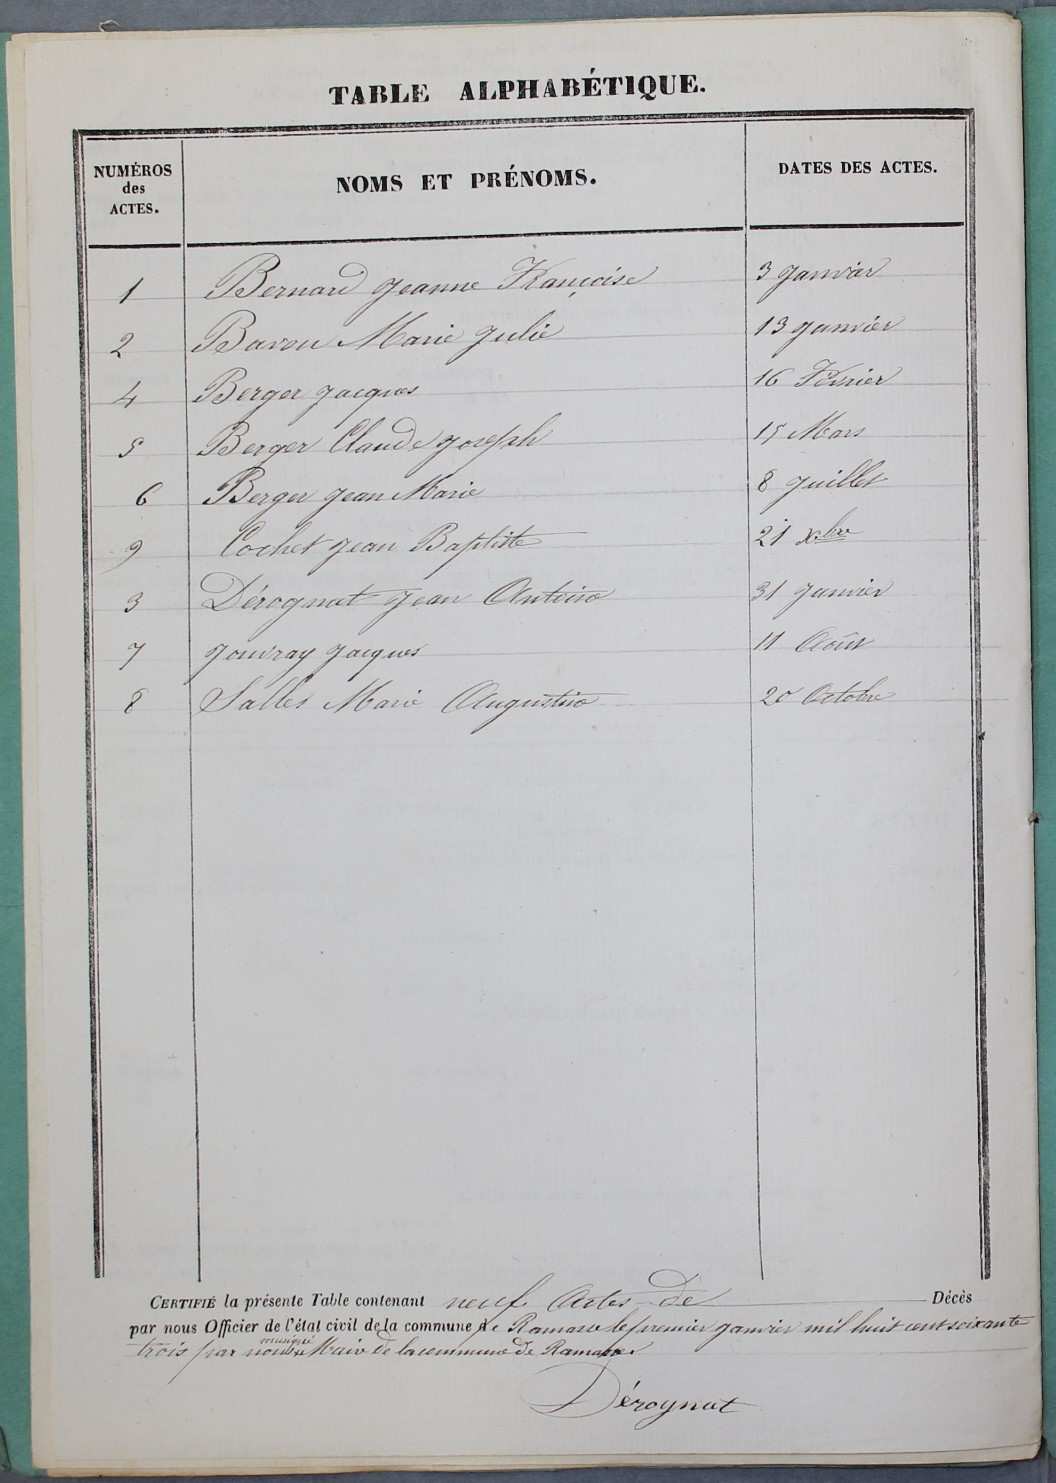 TABLE ALPHABÉTIQUE.
NUMÉROS des ACTES. NOMS ET PRÉNOMS. DATES DES ACTES.
1 Bernard Jeanne Françoise 3 Janvier
2 Bavou Marie Julie 13 Janvier
4 Berger Jacques 16 Février
5 Berger Claude Joseph 15 Mars
6 Berger Jean Marie 8 Juillet
9 Cochet Jean Baptiste 21 Xbre
3 Dérognat Jean Antoine 31 Janvier
7 Jouvray Jacques 11 Août
8 Salles Marie Augustine 20 Octobre
CERTIFIÉ la présente Table contenant neuf Actes de Décès
par nous Officier de l'état civil de la commune de Ramasse le premier Janvier mil huit cent soixante
trois par nous Maire de la commune de Ramasse
Dérognat